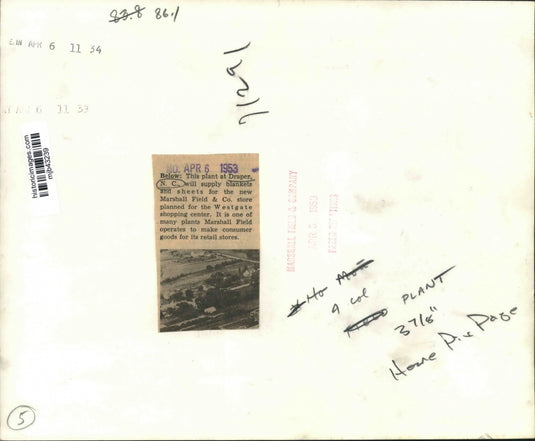 83.8 86.1
APR 6 11 34
APR 6 11 33
historicimages.com
mjb43239
APR 6 1953
Below: This plant at Draper,
N. C., will supply blankets
and sheets for the new
Marshall Field & Co. store
planned for the Westgate
shopping center. It is one of
many plants Marshall Field
operates to make consumer
goods for its retail stores.
MARSHALL FIELD & COMPANY
APR 5 1953
PLANT
3 7/8"
Home Pix Page
5